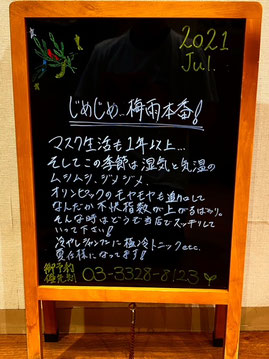 2021
Jul.
じめじめ…梅雨本番!
マスク生活も1年以上…
そしてこの季節は湿気と気温の
ムシムシ、ジメジメ、
オリンピックのモヤモヤも追加して
なんだか不快指数が上がるばかり。
そんな時はどうぞ当店でスッキリして
いって下さい!!
冷やしシャンプーに極冷トニックetc.
夏仕様になってます!
御予約
優先制
03-3328-8123